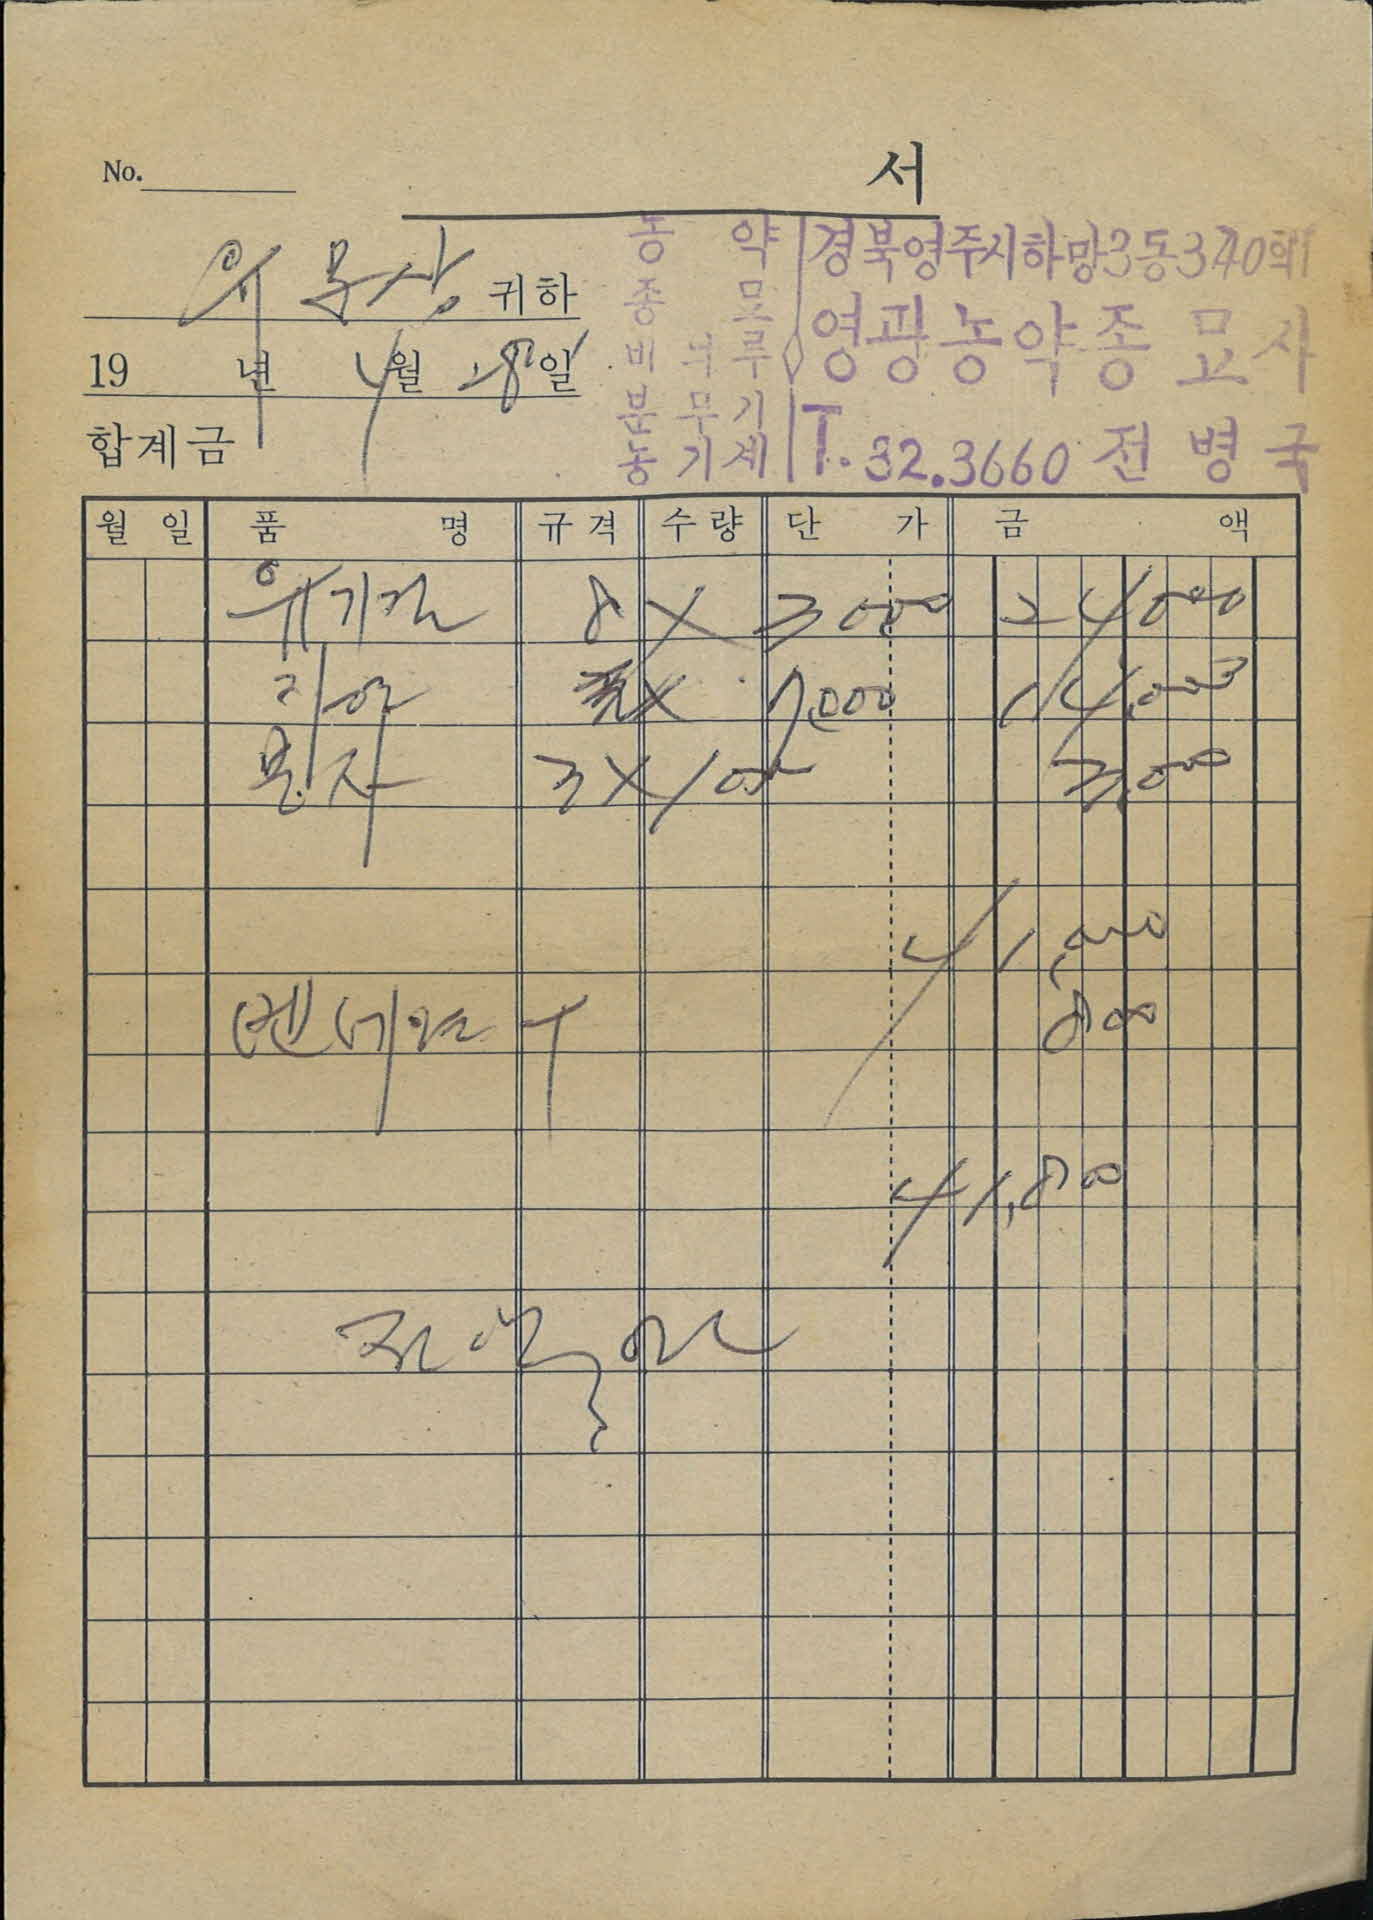 No.
서
귀하
19 년 4월 28일
합계금
농약 종묘 비니루 분무기 농기계
경북영주시하망3동340의1
영광농약종묘사
T. 32.3660 전병국
월 일 품명 규격 수량 단가 금액
유기질 8 X 3000 24000
지오 X 7,000 14,000
3 X 1000 3,000
41,000
벤네이트 T 800
41,800